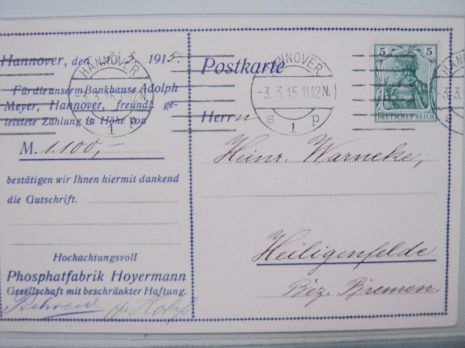 Hannover, den 3/3 1915
Für d. unserm Bankhause Adolph
Meyer, Hannover, freundl. ge-
leistete Zahlung in Höhe von
M. 1.100,-
bestätigen wir Ihnen hiermit dankend
die Gutschrift.
Hochachtungsvoll
Phosphatfabrik Hoyermann
Gesellschaft mit beschränkter Haftung.
HANNOVER
HANNOVER
-3.3.15.11-12N.
S 1 p
Postkarte
5 5
DEUTSCHES REICH
Herrn
Heinr. Warneke,
Heiligenfelde
Bez. Bremen